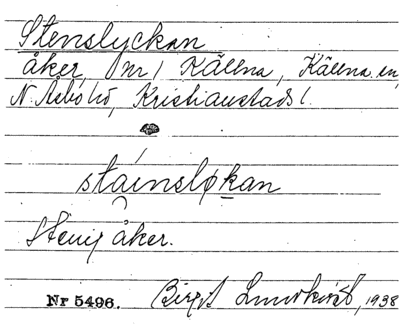 Stenslyckan
åker, nr 1 Källna, Källna sn,
N. Åsbo hd, Kristianstads l.
stáinsløkan
Stenig åker.
Nr 5496. Birgit Lundkvist, 1938